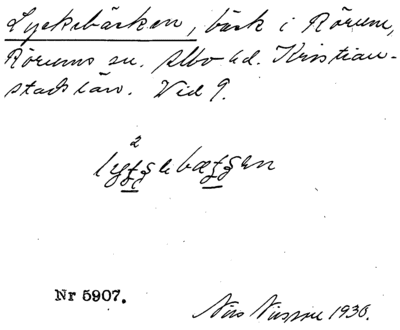 Lycksbäcken, bäck i Rörum,
Rörums sn. Albo hd. Kristian-
stads län. Vid 9.
2
Nr 5907.
Nils Nilsson 1930.